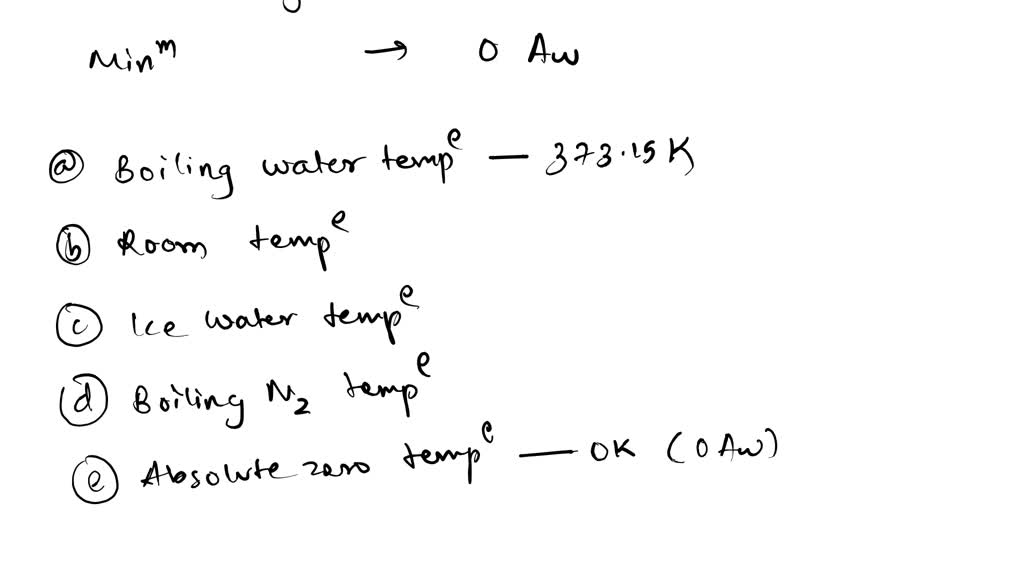 Minᵐ → 0 Aw
ⓐ Boiling water tempᵉ — 373.15 K
ⓑ Room tempᵉ
ⓒ Ice water tempᵉ
ⓓ Boiling N₂ tempᵉ
ⓔ Absolute zero tempᵉ — 0K (0 Aw)